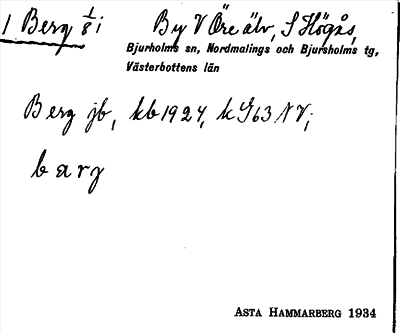 1 Berg 1/8 i By V Öre älv, S Högås,
Bjurholms sn, Nordmalings och Bjurholms tg,
Västerbottens län
Berg jb, kb 1924, k G63 NV;
barj
ASTA HAMMARBERG 1934